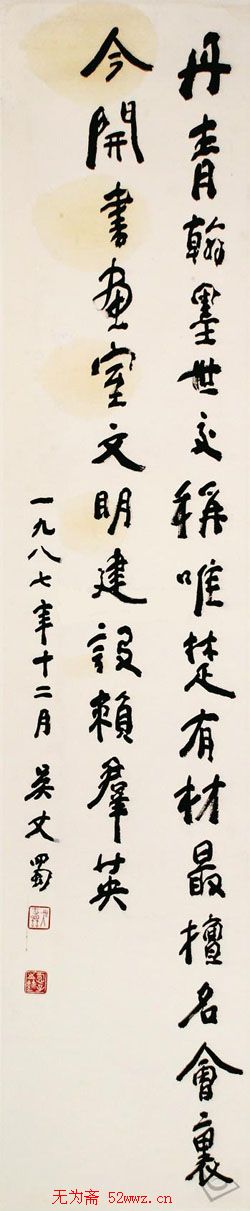 丹青翰墨世交稱唯楚有材最擅名會裏
今開書畫室文明建設賴羣英
一九八七年十二月 吴丈蜀
无为斋 52wwz.cn